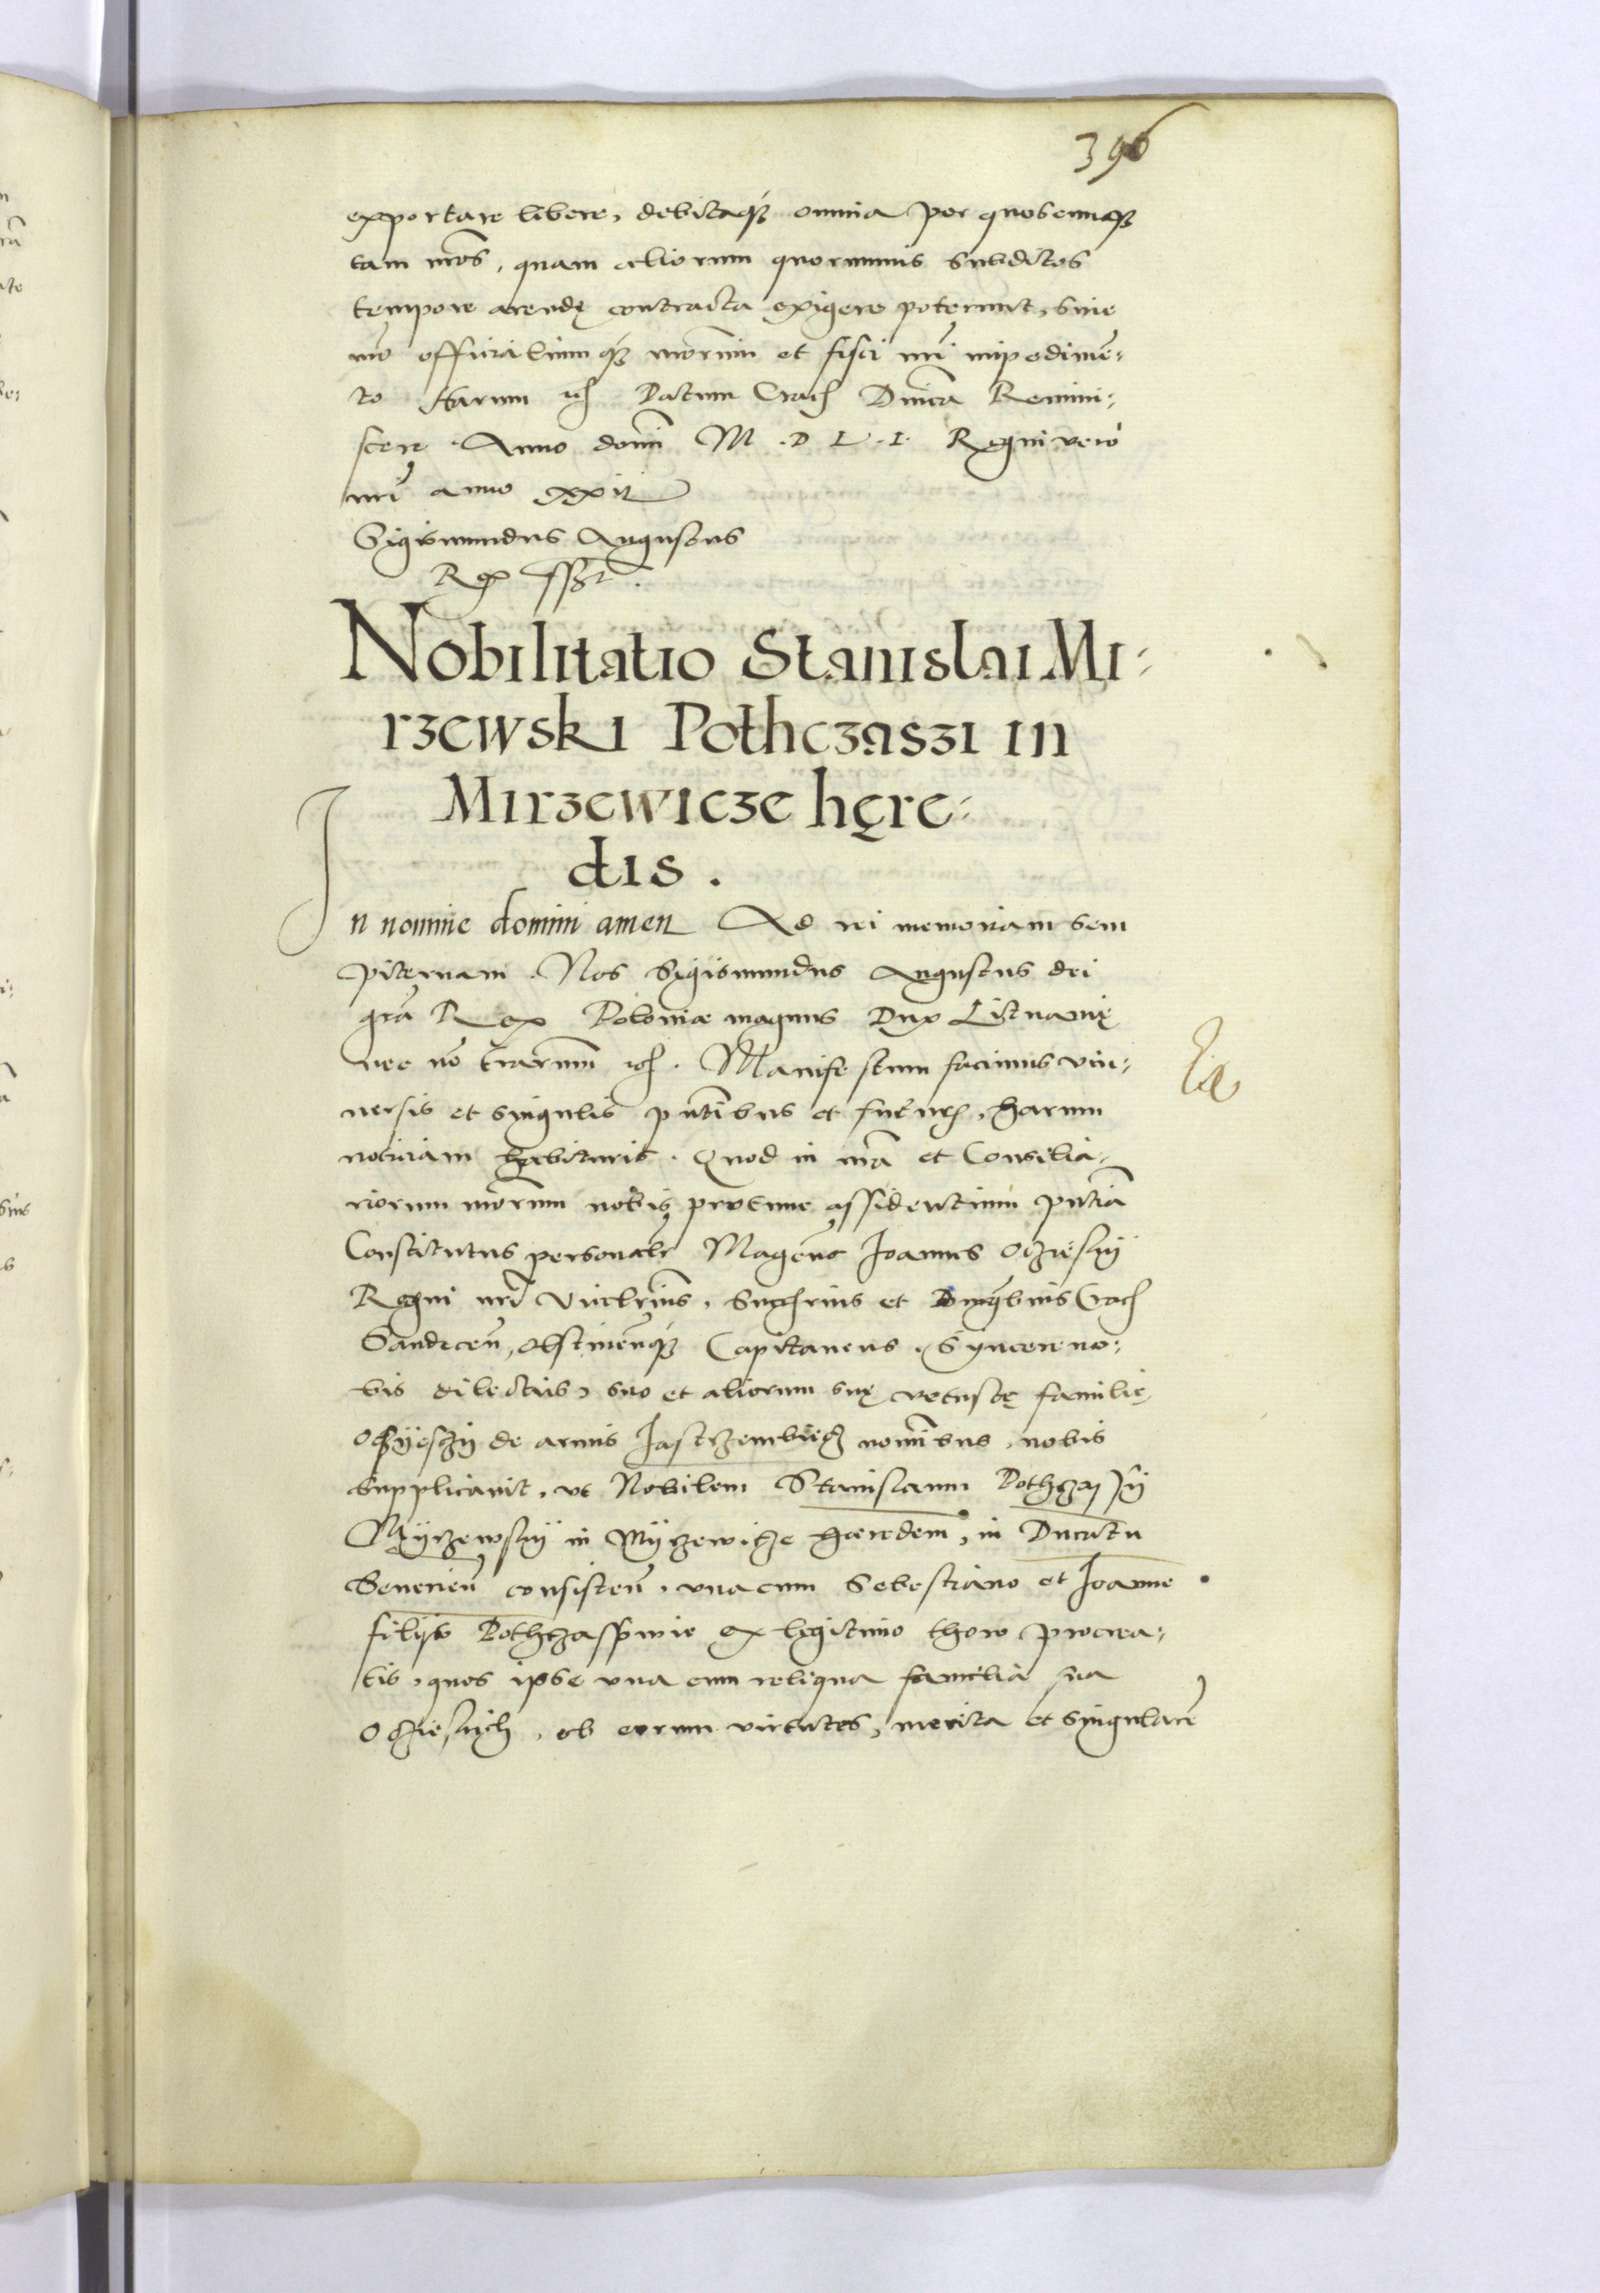 396
exportare libere, debitaq₃ omnia per quoscunq₃
tam nr̃os, quam aliorum quorumvis subditos
tempore arendę contracta exigere poterunt, sine
nr̃o officialiumq₃ nr̃orum et fisci nr̃i impedimẽ-
to Harum etc̃ Datum Crac̃ Dnĩca Remini-
scere Anno domĩ M.D L.I. Regni vero
nr̃i anno xxii
Sigismundus Augustus
Rex sszt.
Nobilitatio Stanislai Mi-
rzewski Pothczaszi in
Mirzewicze hęre-
dis.
In nomine domini amen Ad rei memoriam sem
piternam. Nos Sigismundus Augustus dei
gr̃a Rex Poloniæ magnus Dux Lituanię
nec nõ terrarum etc̃. Manifestum facimus vni-
uersis et singulis pñtibus et futuris, harum
noticiam habituris. Quod in nr̃a et Consilia-
riorum nr̃orum nobis protunc assidentium pñtia
Constitutus personalr̃ Magcũs Joannes Oczieski
Regni nr̃i Vicecanc̃s, succ̃rius et Burgr̃bius Crac̃
Sandecen̄, Olstinen̄q₃ Capitaneus, Syncere no-
bis dilectus, suo et aliorum suę vetustę familię
Oczyeski de armis Jastrzembiecz nomĩbus, nobis
supplicauit, vt Nobilem Stanislaum Pothczaszÿ
Myrzewskÿ in Myrzewicze hæredem, in Ducatu
Seuerien̄ consisten̄, vnacum Sebestiano et Joanne
filijs Pothczasszowie ex legitimo thoro procrea-
tis, quos ipse vna cum reliqua familia sua
Oczieskich, ob eorum virtutes, merita et singularẽ